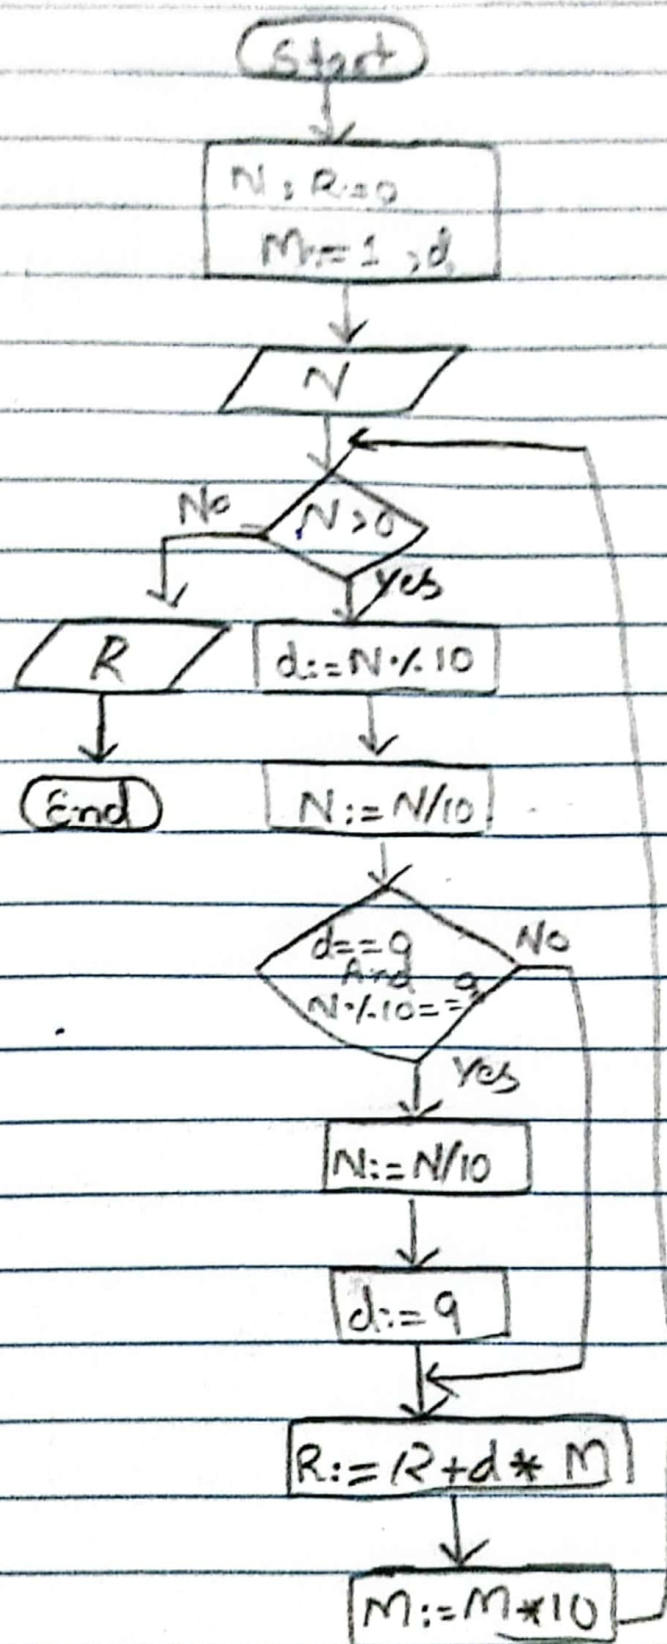 Start
N, R:=0
M:=1, d
N
N>0
No
Yes
R
d:=N%10
End
N:=N/10
d==9
And
N%10==9
No
Yes
N:=N/10
d:=9
R:=R+d*M
M:=M*10